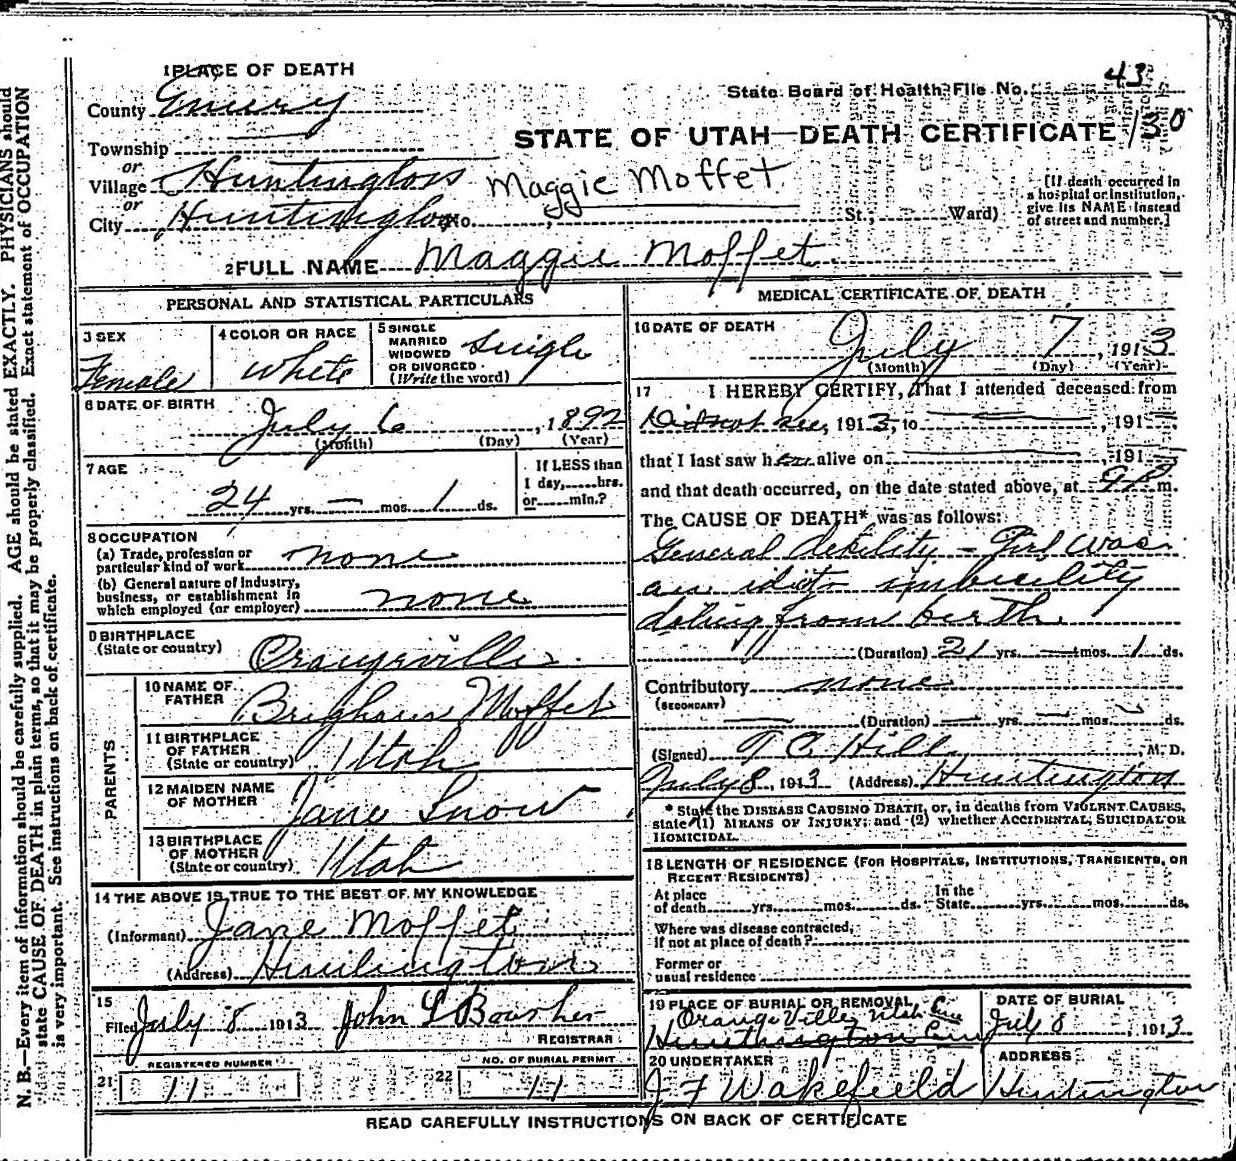 43
1 PLACE OF DEATH
State Board of Health File No.
County Emery
STATE OF UTAH—DEATH CERTIFICATE
Township
or
Village Huntington
Maggie Moffet
or
City Huntington No. St., Ward)
[If death occurred in a hospital or institution, give its NAME instead of street and number.]
2 FULL NAME Maggie Moffet
PERSONAL AND STATISTICAL PARTICULARS
3 SEX
Female
4 COLOR OR RACE
White
5 SINGLE MARRIED WIDOWED OR DIVORCED (Write the word)
Single
6 DATE OF BIRTH
July 6, 1892
(Month) (Day) (Year)
7 AGE
24 yrs. — mos. 1 ds.
If LESS than 1 day, hrs. or min.?
8 OCCUPATION
(a) Trade, profession or particular kind of work none
(b) General nature of Industry, business, or establishment in which employed (or employer) none
9 BIRTHPLACE (State or country)
PARENTS
10 NAME OF FATHER Brigham Moffet
11 BIRTHPLACE OF FATHER (State or country) Utah
12 MAIDEN NAME OF MOTHER Jane Snow
13 BIRTHPLACE OF MOTHER (State or country) Utah
14 THE ABOVE IS TRUE TO THE BEST OF MY KNOWLEDGE
(Informant) Jane Moffet
(Address) Huntington
15
Filed July 8 1913 John L
REGISTRAR
REGISTERED NUMBER
21 11
NO. OF BURIAL PERMIT
22 11
MEDICAL CERTIFICATE OF DEATH
16 DATE OF DEATH
July 7, 1913
(Month) (Day) (Year)
17 I HEREBY CERTIFY, That I attended deceased from
Did not see, 1913, to , 191
that I last saw h alive on , 191
and that death occurred, on the date stated above, at 9 P m.
The CAUSE OF DEATH* was as follows:
General debility – Girl was
an idiot imbecility
dating from birth.
(Duration) 21 yrs. — mos. 1 ds.
Contributory none
(SECONDARY)
(Duration) — yrs. — mos. ds.
(Signed) T C Hill, M. D.
July 8, 1913 (Address) Huntington
* State the DISEASE CAUSING DEATH, or, in deaths from VIOLENT CAUSES, state (1) MEANS OF INJURY; and (2) whether ACCIDENTAL, SUICIDAL OR HOMICIDAL.
18 LENGTH OF RESIDENCE (FOR HOSPITALS, INSTITUTIONS, TRANSIENTS, OR RECENT RESIDENTS)
At place of death yrs. mos. ds. In the State yrs. mos. ds.
Where was disease contracted, if not at place of death?
Former or usual residence
19 PLACE OF BURIAL OR REMOVAL
Orangeville, Utah Cem
Huntington Cem
DATE OF BURIAL
July 8, 1913
20 UNDERTAKER
J F Wakefield
ADDRESS
Huntington
READ CAREFULLY INSTRUCTIONS ON BACK OF CERTIFICATE
N. B.—Every item of information should be carefully supplied. AGE should be stated EXACTLY. PHYSICIANS should
state CAUSE OF DEATH in plain terms, so that it may be properly classified. Exact statement of OCCUPATION
is very important. See instructions on back of certificate.